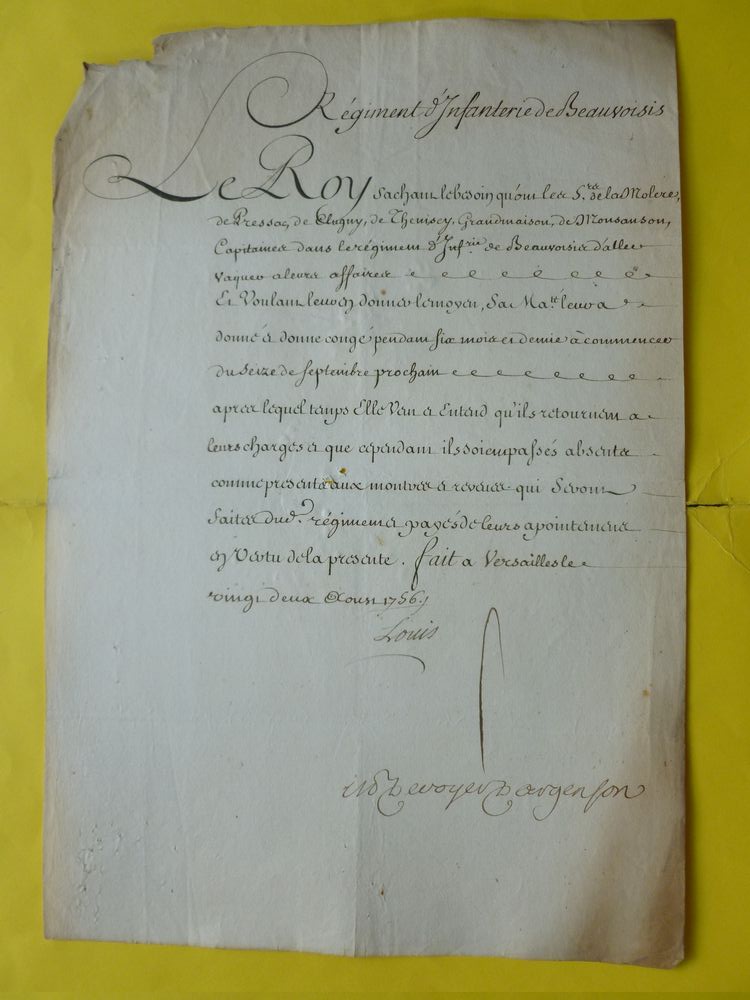 Régiment d'Infanterie de Beauvoisis
Le Roy sachant le besoin qu'ont les S.rs de la Molere,
de Pressac, de Clugny, de Thenisey, Grandmaison, de Monsanson,
Capitaines dans le régiment d'Inf.rie de Beauvoisis d'aller
vaquer a leurs affaires
Et Voulant leur en donner le moyen, Sa Ma.té leur a
donné et donne congé pendant six mois et demie à commencer
du seize de septembre prochain
apres lequel temps Elle Veut et Entend qu'ils retournent a
leurs charges et que cependant ils soient passés absents
comme presents aux montres et reveues qui Seront
faites dud. régiment et payés de leurs apointemens
en Vertu de la presente. fait a Versailles le
vingt deux Aoust 1756.
Louis
M D Devoyer D'argenson